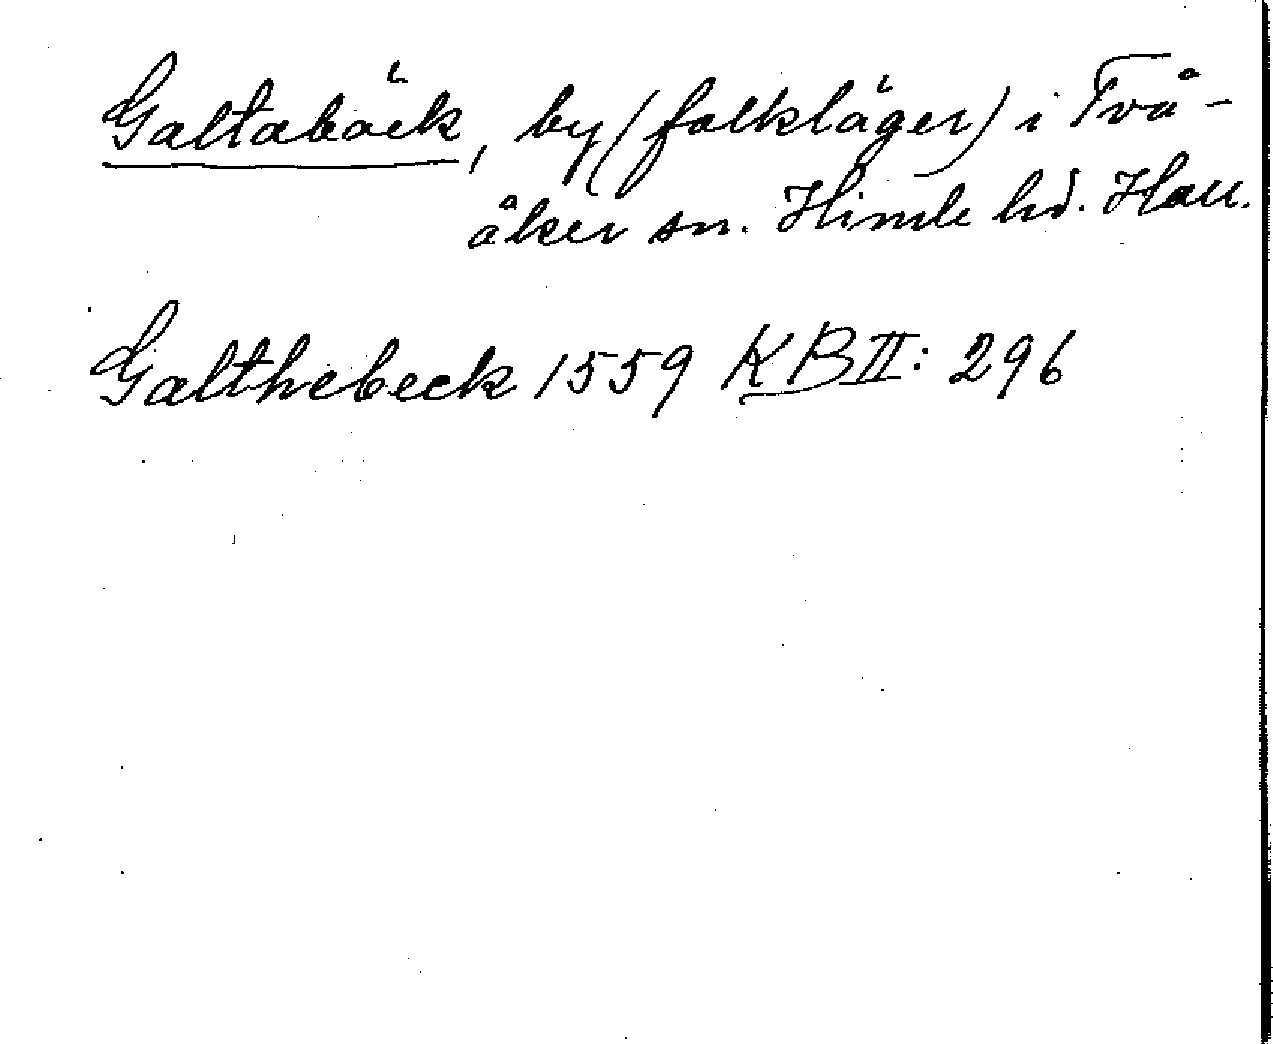 Galtabäck, by (folkläger) i Två-
åker sn. Himle hd. Hall.
Galthebeck 1559 KB II: 296